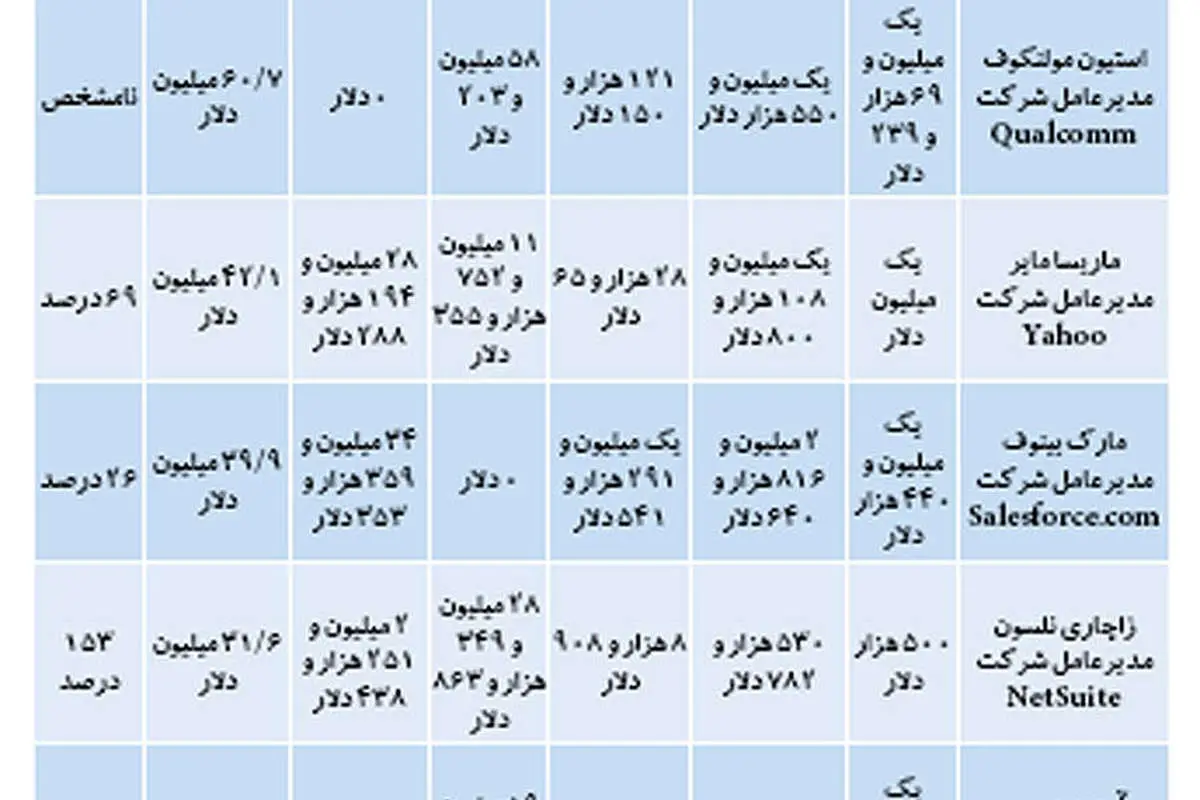 استیون مولنکوف
مدیرعامل شرکت
Qualcomm
یک
میلیون و
۶۹ هزار
و ۲۳۹
دلار
یک میلیون و
۵۵۰ هزار دلار
۱۲۱ هزار و
۱۵۰ دلار
۵۸ میلیون
و ۲۰۳
دلار
۰ دلار
۶۰/۷ میلیون
دلار
نامشخص
ماریسا مایر
مدیرعامل شرکت
Yahoo
یک
میلیون
دلار
یک میلیون و
۱۰۸ هزار و
۸۰۰ دلار
۲۸ هزار و ۶۵
دلار
۱۱ میلیون
و ۷۵۲
هزار و ۳۵۵
دلار
۲۸ میلیون و
۱۹۴ هزار و
۲۸۸ دلار
۴۲/۱ میلیون
دلار
۶۹ درصد
مارک بینوف
مدیرعامل شرکت
Salesforce.com
یک
میلیون و
۴۴۰ هزار
دلار
۲ میلیون و
۸۱۶ هزار و
۶۴۰ دلار
یک میلیون و
۲۹۱ هزار و
۵۴۱ دلار
۰ دلار
۳۴ میلیون و
۳۵۹ هزار و
۳۵۳ دلار
۳۹/۹ میلیون
دلار
۲۶ درصد
زاچاری نلسون
مدیرعامل شرکت
NetSuite
۵۰۰ هزار
دلار
۵۳۰ هزار و
۷۸۲ دلار
۸ هزار و ۹۰۸
دلار
۲۸ میلیون
و ۳۴۹
هزار و ۸۶۳
دلار
۲ میلیون و
۲۵۱ هزار و
۴۳۸ دلار
۳۱/۶ میلیون
دلار
۱۵۳
درصد
یک